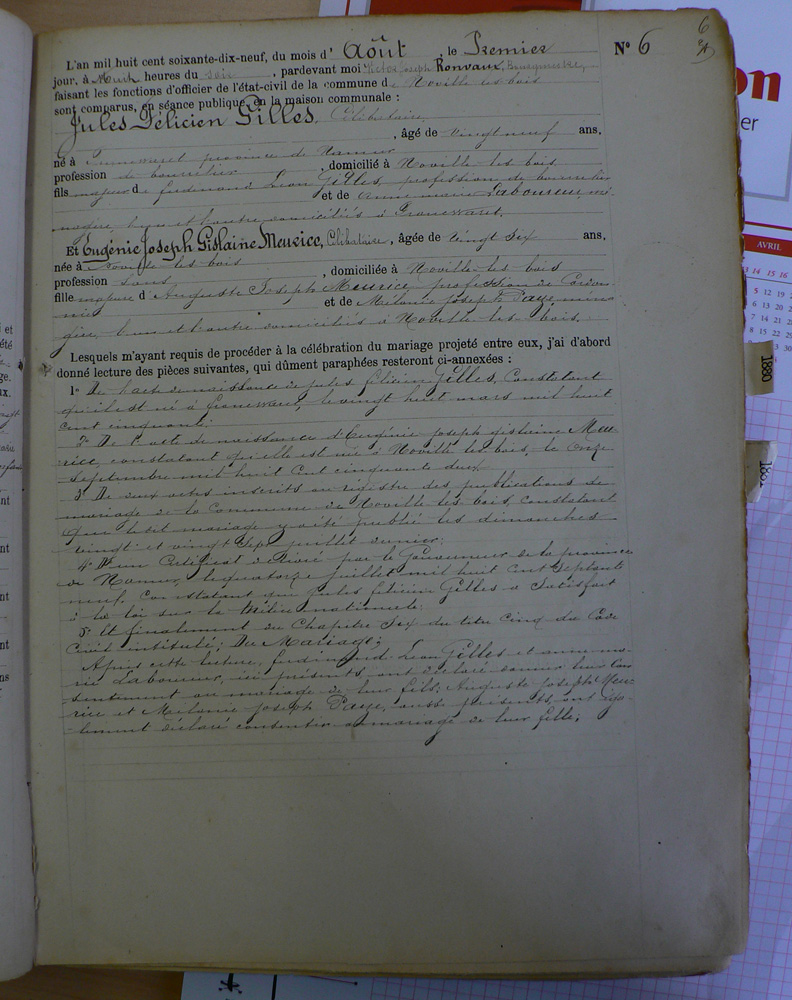 6
L'an mil huit cent soixante-dix-neuf, du mois d' Août , le Premier
N° 6
jour, à heures du soir , pardevant moi Victor Joseph Ronvaux, Bourgmestre,
faisant les fonctions d'officier de l'état-civil de la commune de Noville les bois
sont comparus, en séance publique, en la maison communale :
Jules Félicien Gilles, Célibataire,
, âgé de vingt neuf ans,
né à Franc-waret province de Namur
profession de bourrelier , domicilié à Noville les bois
fils majeur de ferdinand Léon Gilles, profession de bourrelier
et de anne marie Laboureur, mé-
nagère, l'un et l'autre domiciliés à Franc-waret,
Et Eugénie Joseph Gislaine Meurice, Célibataire, âgée de vingt Six ans,
née à Noville les bois
profession Sans , domiciliée à Noville les bois
fille majeure d'Auguste Joseph Meurice, profession de Cordon-
nier et de Mélanie Joseph Paye, ména-
gère, l'un et l'autre domiciliés à Noville-les-bois,
Lesquels m'ayant requis de procéder à la célébration du mariage projeté entre eux, j'ai d'abord
donné lecture des pièces suivantes, qui dûment paraphées resteront ci-annexées :
1° De l'acte de naissance de jules félicien Gilles, Constatant
qu'il est né à franc-waret, le vingt huit mars mil huit
cent cinquante.
2° De l'acte de naissance d'Eugénie joseph gislaine Meu-
rice, constatant qu'elle est née à Noville les bois, le onze
Septembre mil huit Cent cinquante deux
3° De deux actes inscrits au registre des publications de
mariage de la Commune de Noville les bois, constatant
que le dit mariage y a été publié les dimanches
vingt et vingt Sept juillet dernier;
4° D'un Certificat délivré par le Gouverneur de la province
de Namur, le quatorze juillet mil huit Cent Septante
neuf, Constatant que jules félicien Gilles a Satisfait
à la loi sur la Milice nationale
5° Et finalement du Chapitre Six du titre Cinq du Code
Civil intitulé; Du Mariage;
Après cette lecture, ferdinand Léon Gilles et anne ma-
rie Laboureur, ici présents, ont déclaré donner leur Con-
sentement au mariage de leur fils; Auguste joseph Meu-
rice et Mélanie joseph Paye, aussi présents, ont éga-
lement déclaré consentir au mariage de leur fille;
on
er
AVRIL
1880
1881